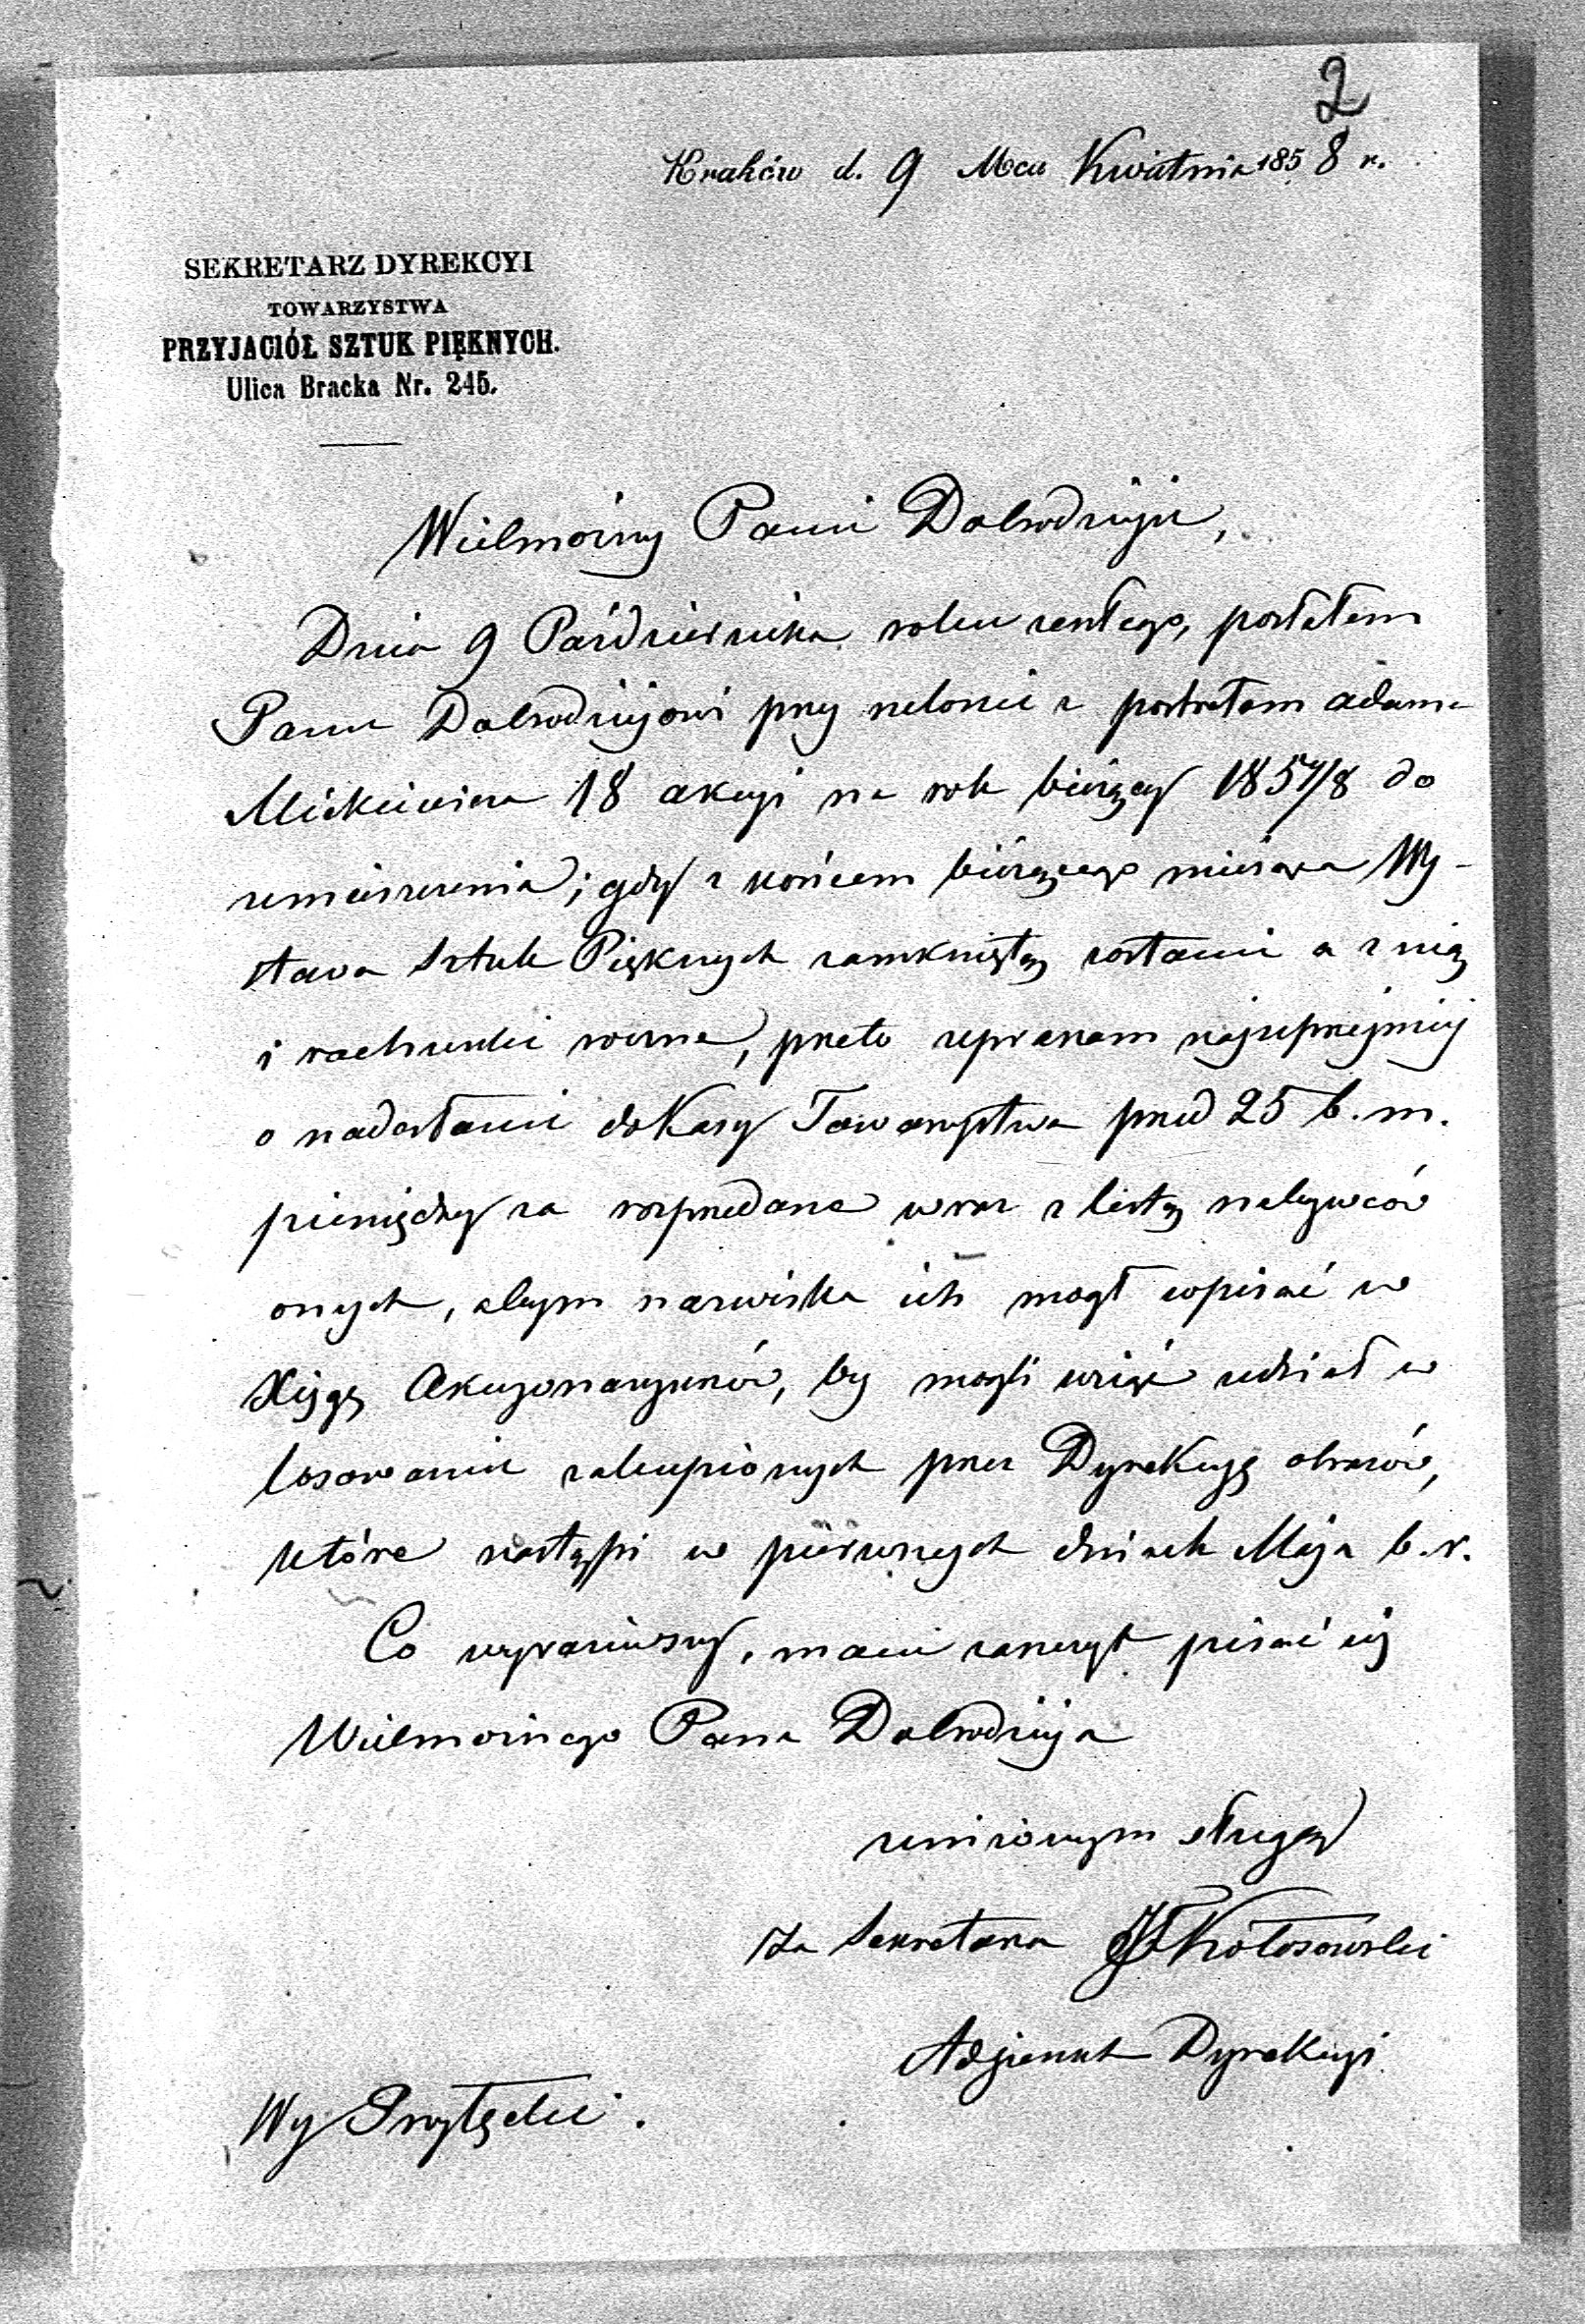 2
Kraków d. 9 Mca Kwietnia 1858 r.
SEKRETARZ DYREKCYI
TOWARZYSTWA
PRZYJACIÓŁ SZTUK PIĘKNYCH.
Ulica Bracka Nr. 245.
Wielmożny Panie Dobrodzieju,
Dnia 9 Października roku zeszłego, posłałem
Panu Dobrodziejowi przy z portretem Adama
Mickiewicza 18 akcyi na rok bieżący 1857/8 do
umieszczenia; gdy z końcem bieżącego miesiąca Wy-
stawa Sztuk Pięknych zamkniętą zostanie a z nią
i rachunki roczne, przeto upraszam najuprzejmiej
o nadesłanie do Kasy Towarzystwa przed 25 b. m.
pieniędzy za rozprzedane wraz z listą nabywców
onych, abym nazwiska ich mógł wpisać w
Xięgę Akcyonaryuszów, by mogli wziąść udział w
losowaniu zakupionych przez Dyrekcyę obrazów,
które nastąpi w pierwszych dniach Maja b. r.
Co wyraziwszy, mam zaszczyt pisać się
Wielmożnego Pana Dobrodzieja
uniżonym sługą
Za Sekretarza Kołosowski
Adjunkt Dyrekcyi
Wy Przyłęcki.